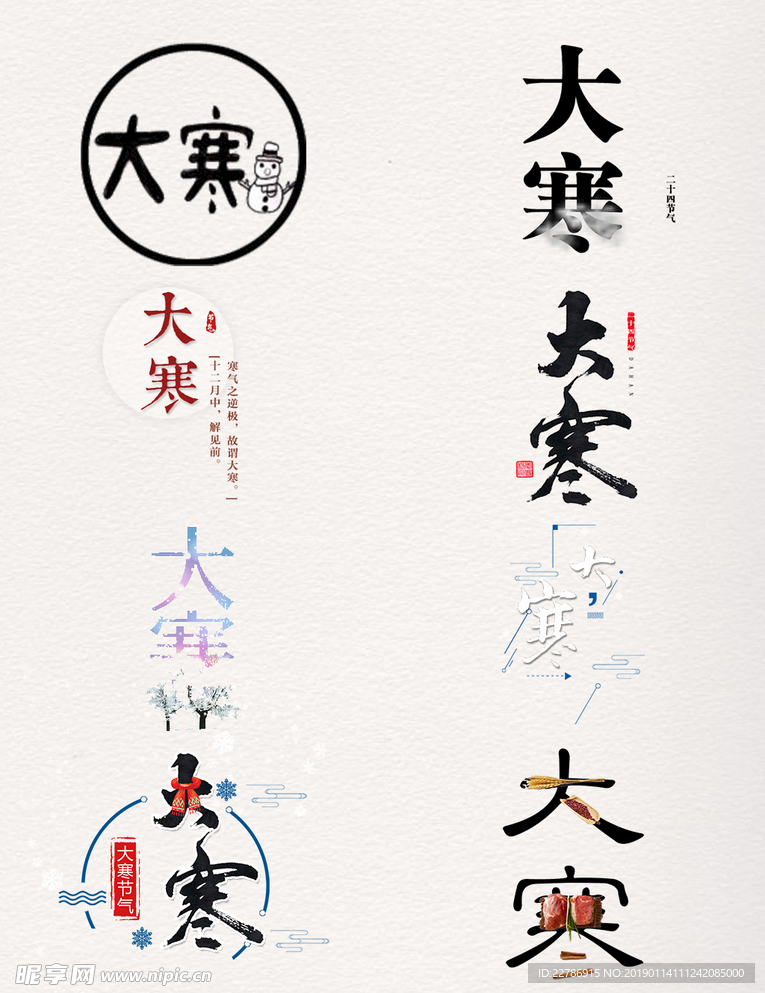 大寒
大寒
二十四节气
大寒
节气
寒气之逆极，故谓大寒。
十二月中，解见前。
大寒
二十四节气
DAHAN
大寒
大寒
大寒
大寒节气
大寒
昵享网 www.nipic.cn
ID:22786915 NO:20190114111242085000